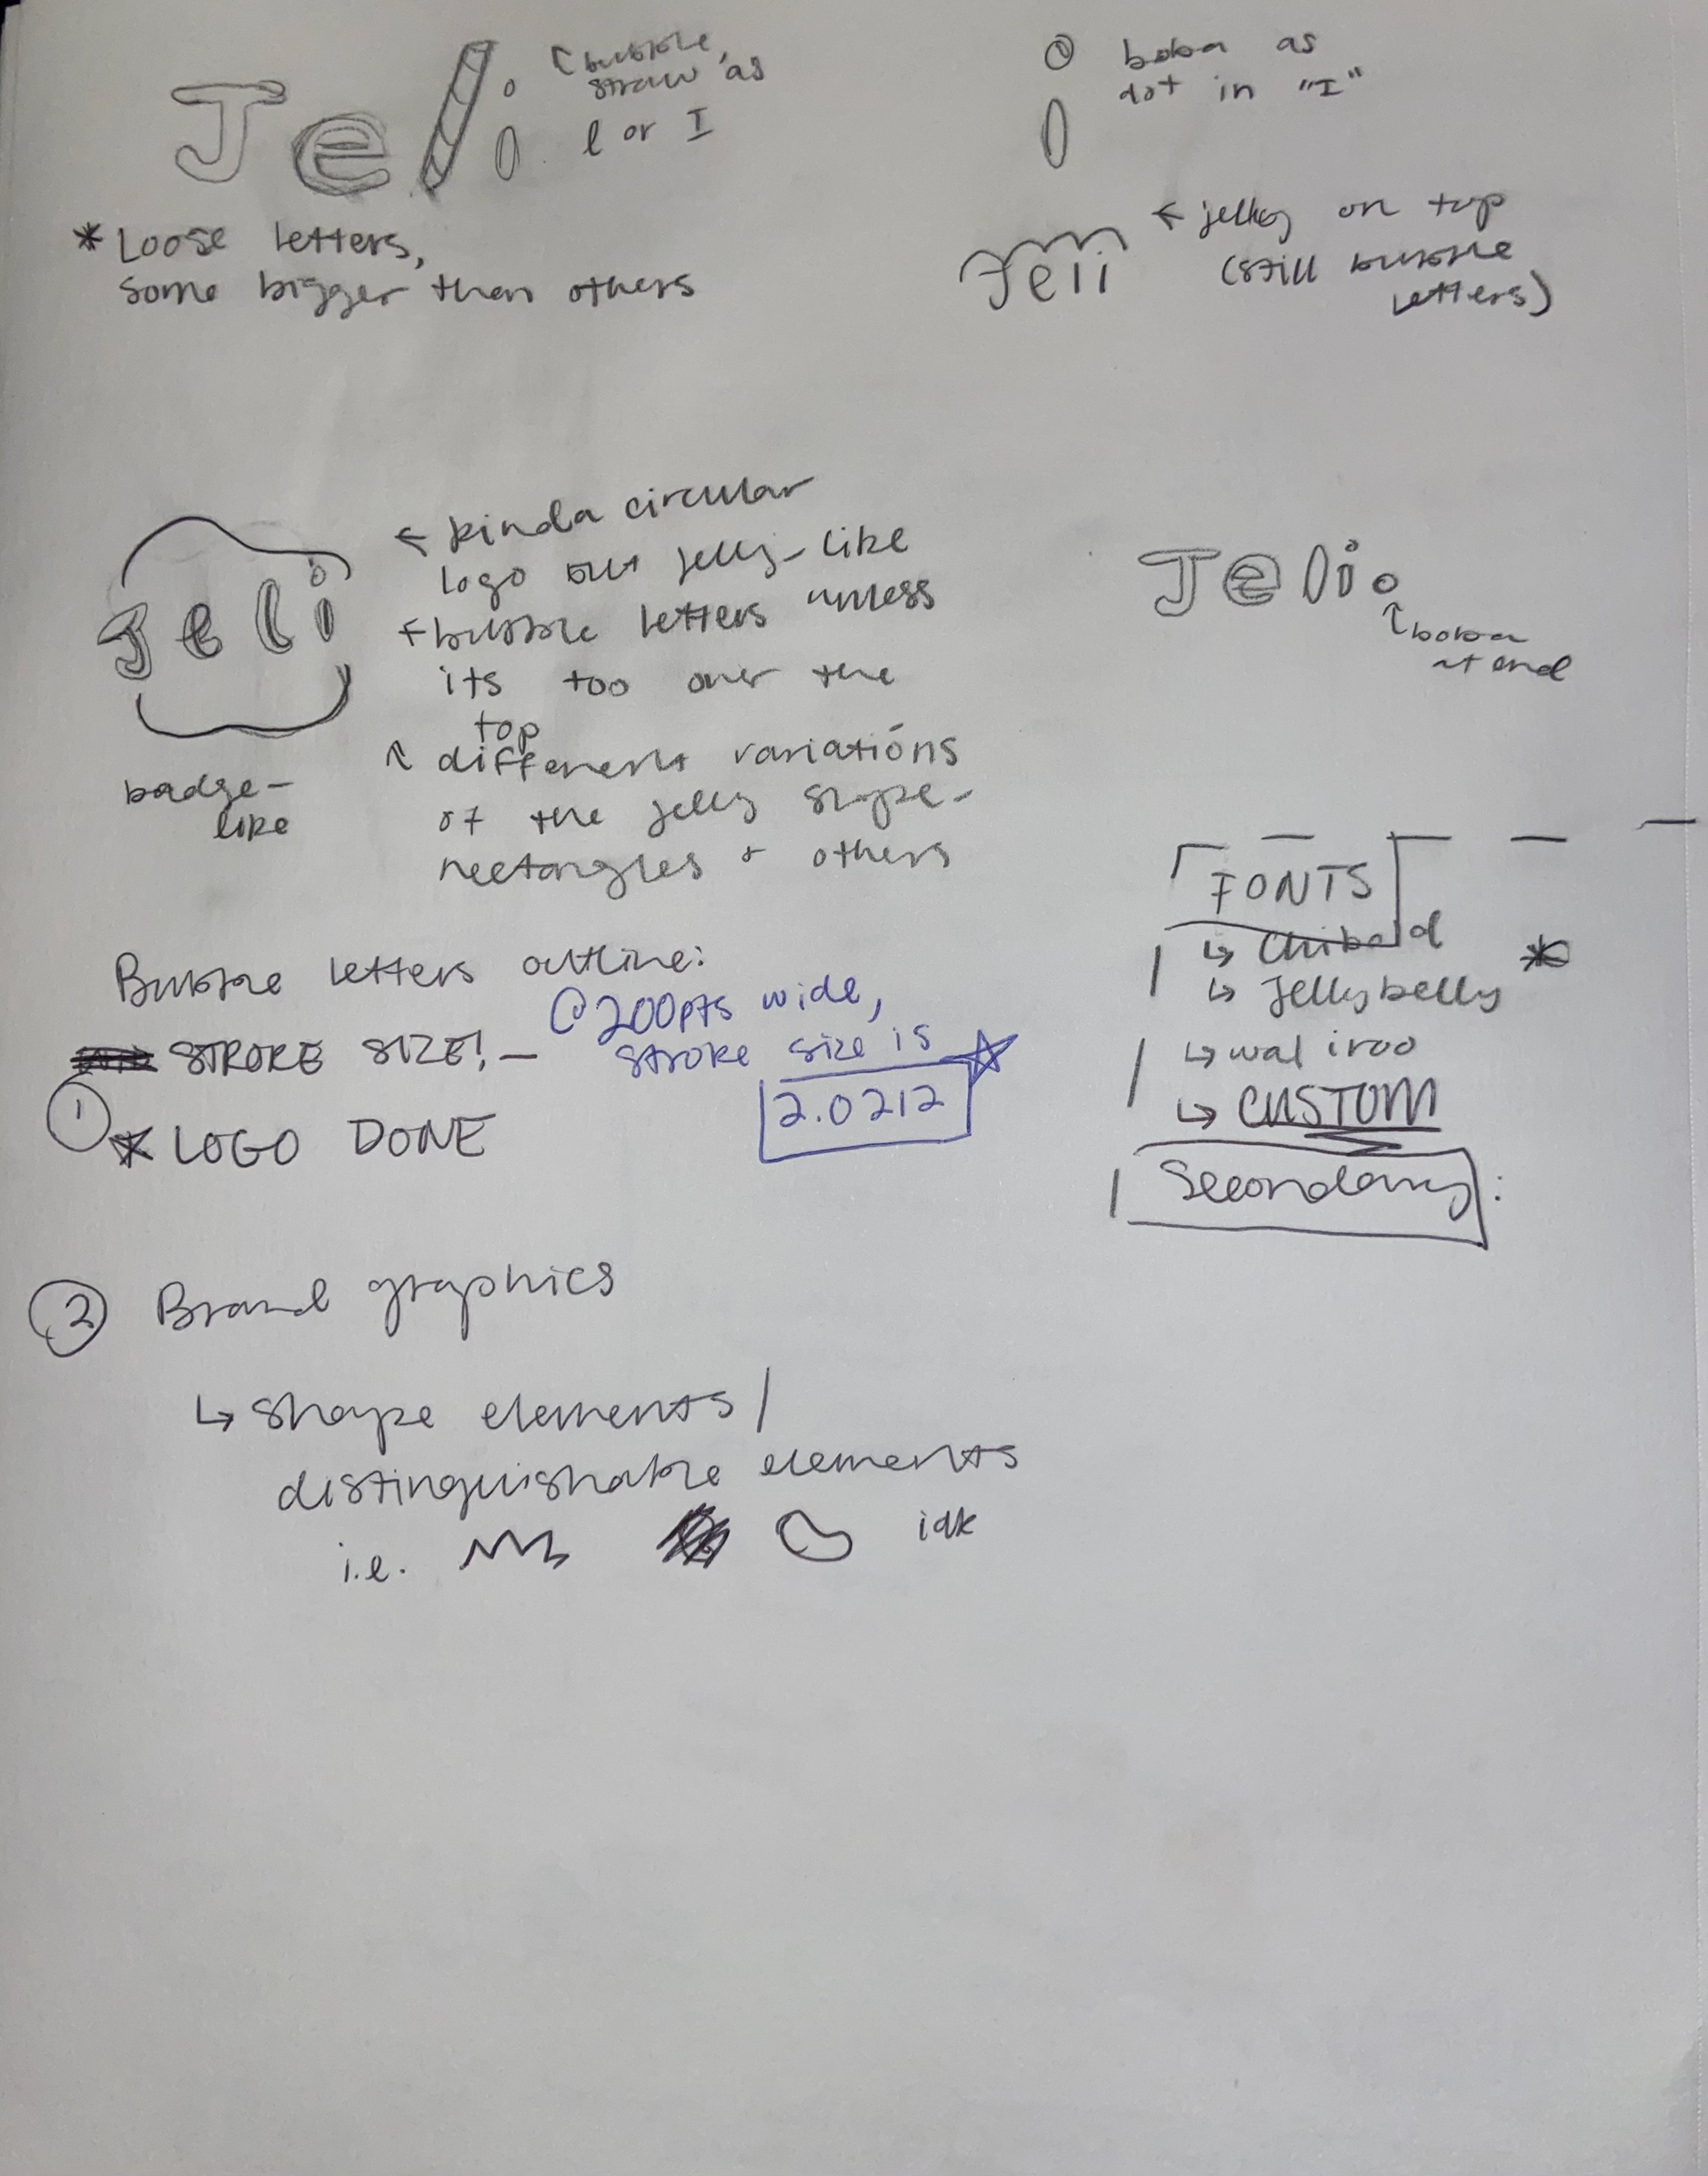 Jeli
bubble
straw as
l or I
* Loose letters,
some bigger than others
boba as
dot in "I"
Jeli
← jelly on top
(still bubble
letters)
Jeli
badge-
like
← kinda circular
logo but jelly-like
+ bubble letters unless
its too over the
top
different variations
of the jelly shape-
rectangles + others
Jeli
boba
at end
Bubble letters outline:
STROKE SIZE! -
@ 200pts wide,
stroke size is
2.0212
1
* LOGO DONE
FONTS
↳ Chibold
↳ Jellybelly *
↳ wal iroo
↳ CUSTOM
Secondary:
2 Brand graphics
↳ shape elements/
distinguishable elements
i.e. idk